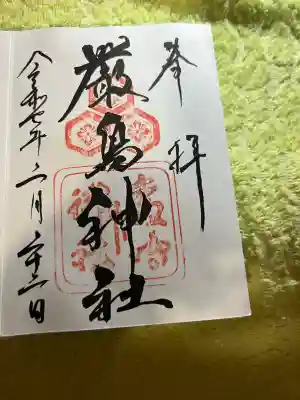 奉拝
嚴島神社
令和七年二月二十二日